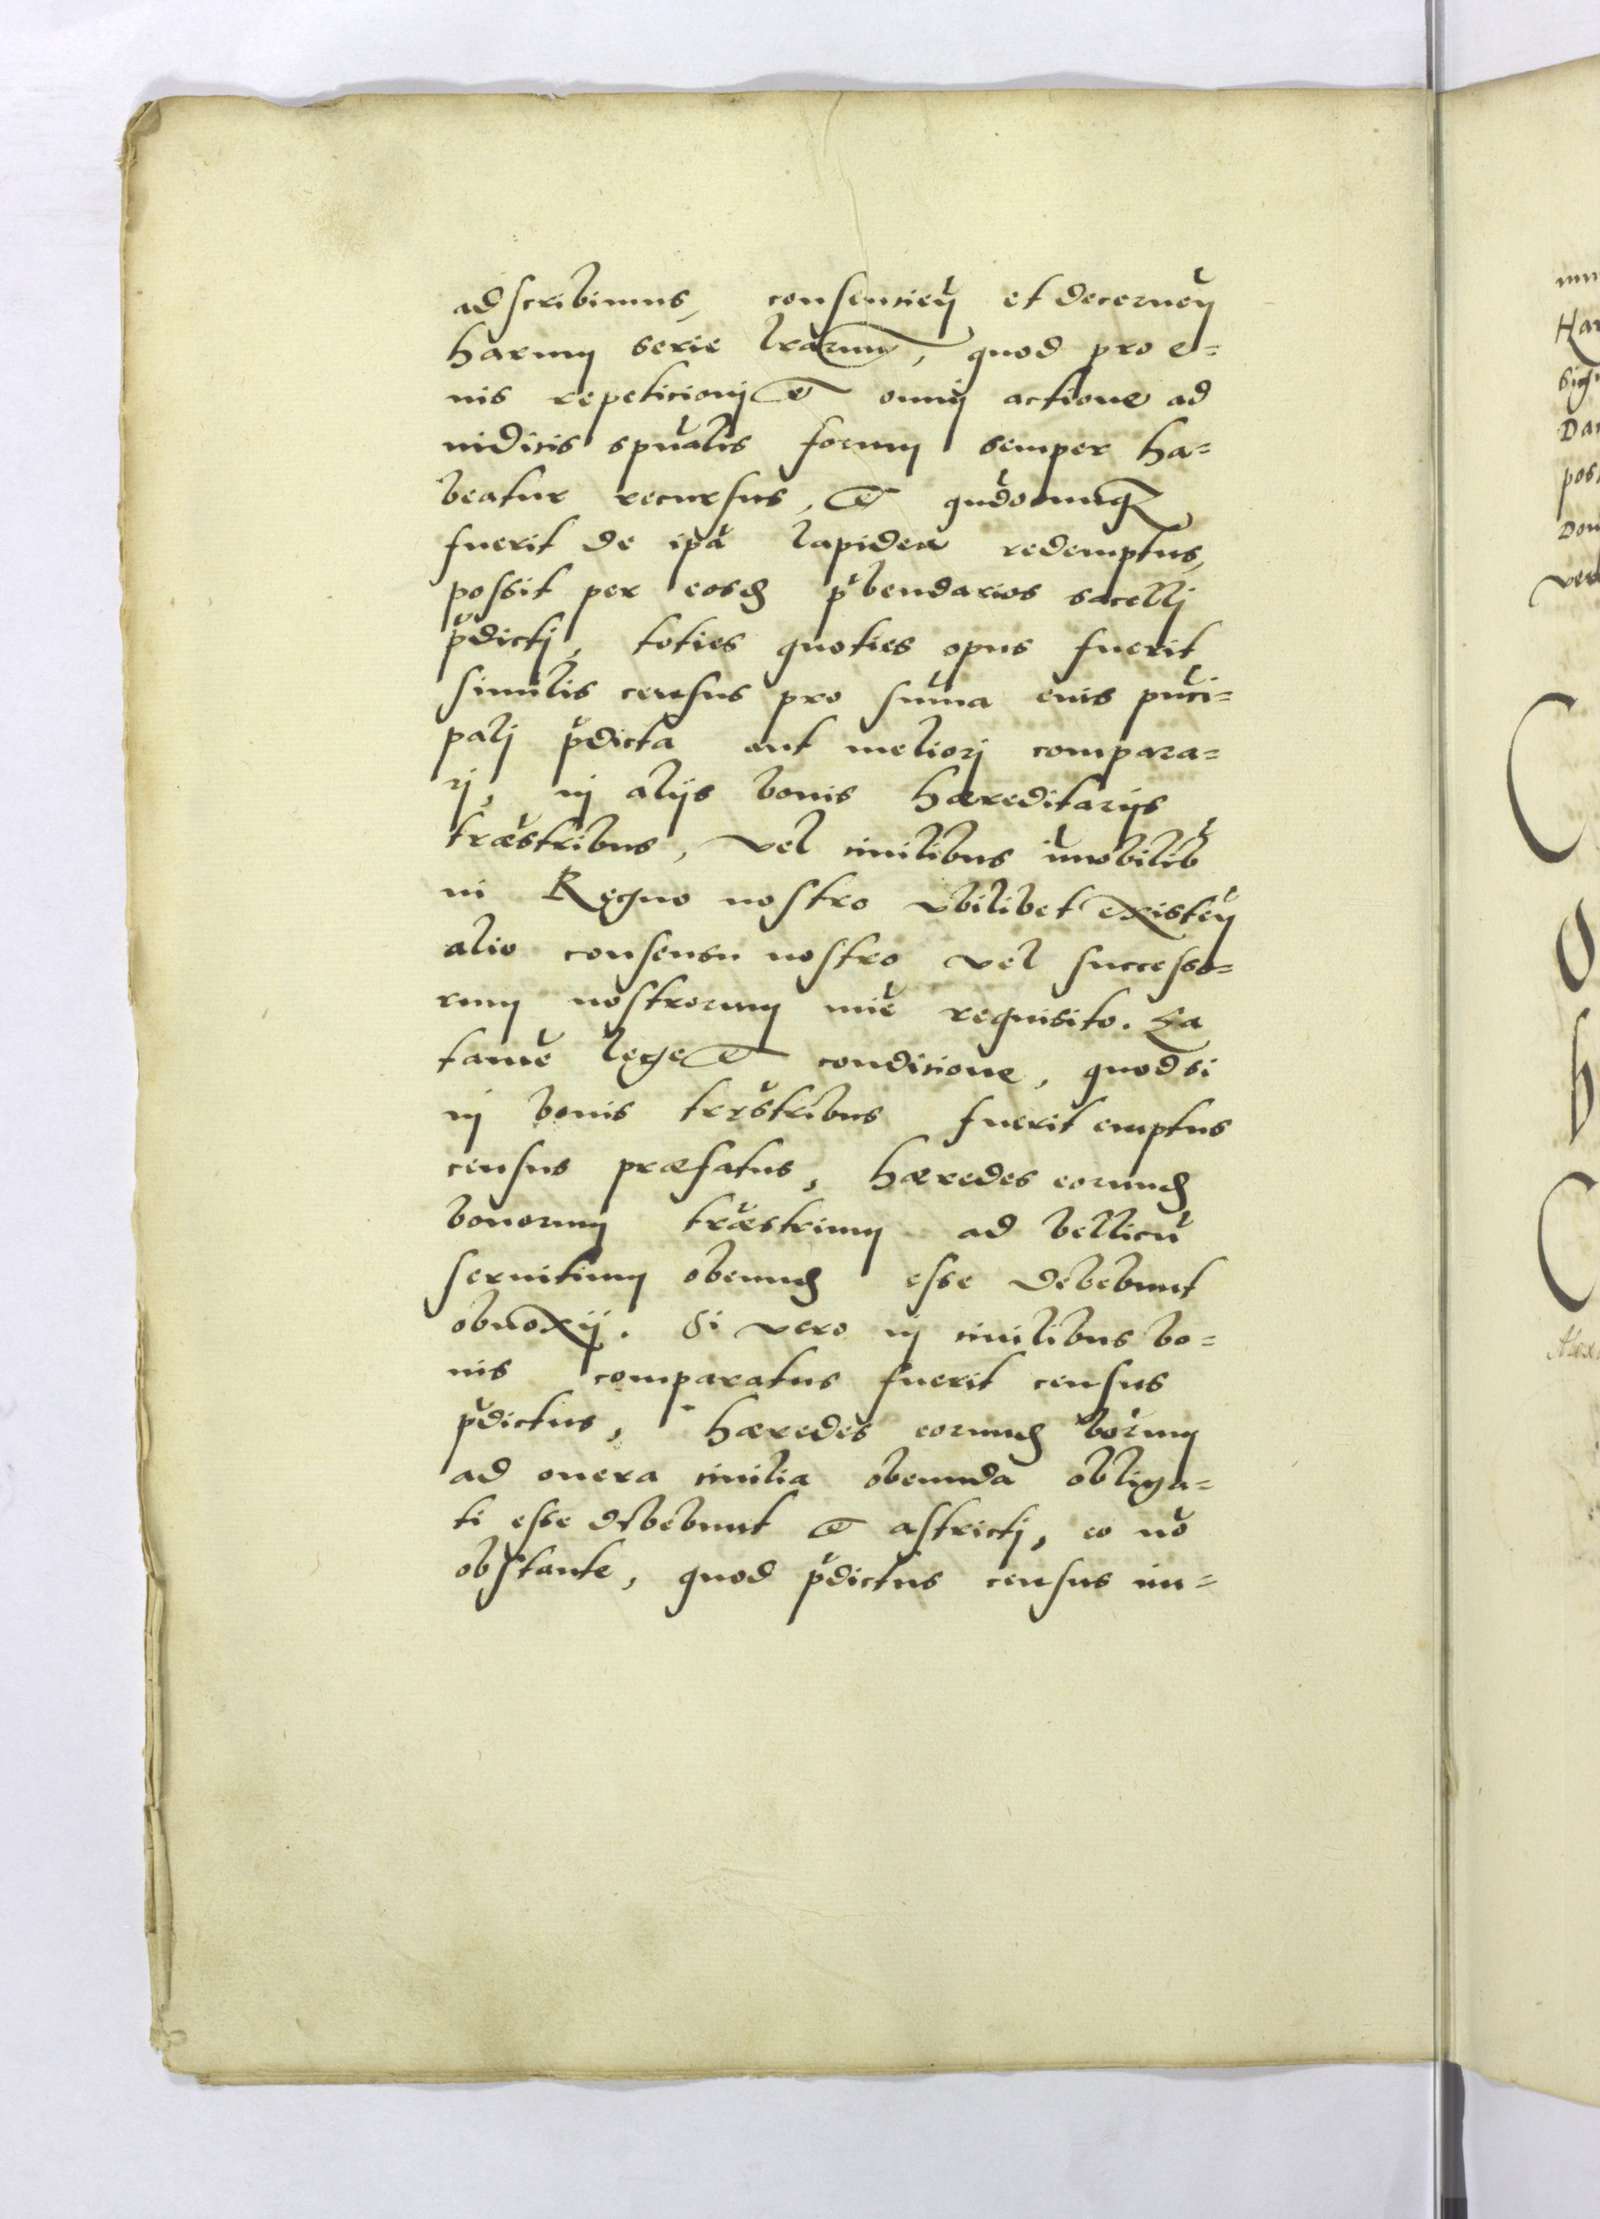 adscribimus, consencieñ et decerneñ
harum serie lrarum, quod pro e=
ius repeticioni et omni actione ad
iudicis spualis forum semper ha=
beatur recursus, et qudocunq
fuerit de ipa lapidea redemptus,
possit per eosd p̄bendarios sacelli
p̄dicti, toties quoties opus fuerit
similis census pro sum̄a eius p̄nci=
pali p̄dicta aut meliori compara=
ri, in alijs bonis hæreditarijs
træstribus, vel ciuilibus im̄obilib
in Regno nostro vbilibet existeñ
alio consensu nostro vel successo=
rum nostrorum mie requisito. Ea
tame lege et condicione, quod si
in bonis trrstribus fuerit emptus
census præfatus, hæredes eorund
bonorum træstrium ad bellicu
seruitium obeund esse debebunt
obnoxij. Si vero in ciuilibus bo=
nis comparatus fuerit census
p̄dictus, hæredes eorund borum
ad onera ciuilia obeunda obliga=
ti esse debebunt et astricti, eo no
obstante, quod p̄dictus census im=